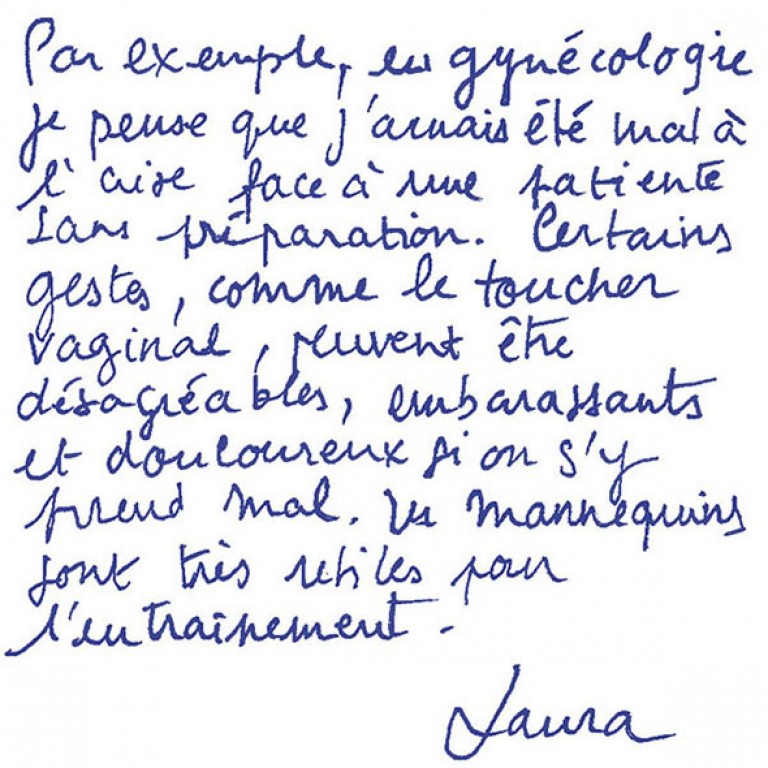 Par exemple, en gynécologie
je pense que j'aurais été mal à
l'aise face à une patiente
sans préparation. Certains
gestes, comme le toucher
vaginal, peuvent être
désagréables, embarassants
et douloureux si on s'y
prend mal. Les mannequins
sont très utiles pour
l'entraînement.
Laura